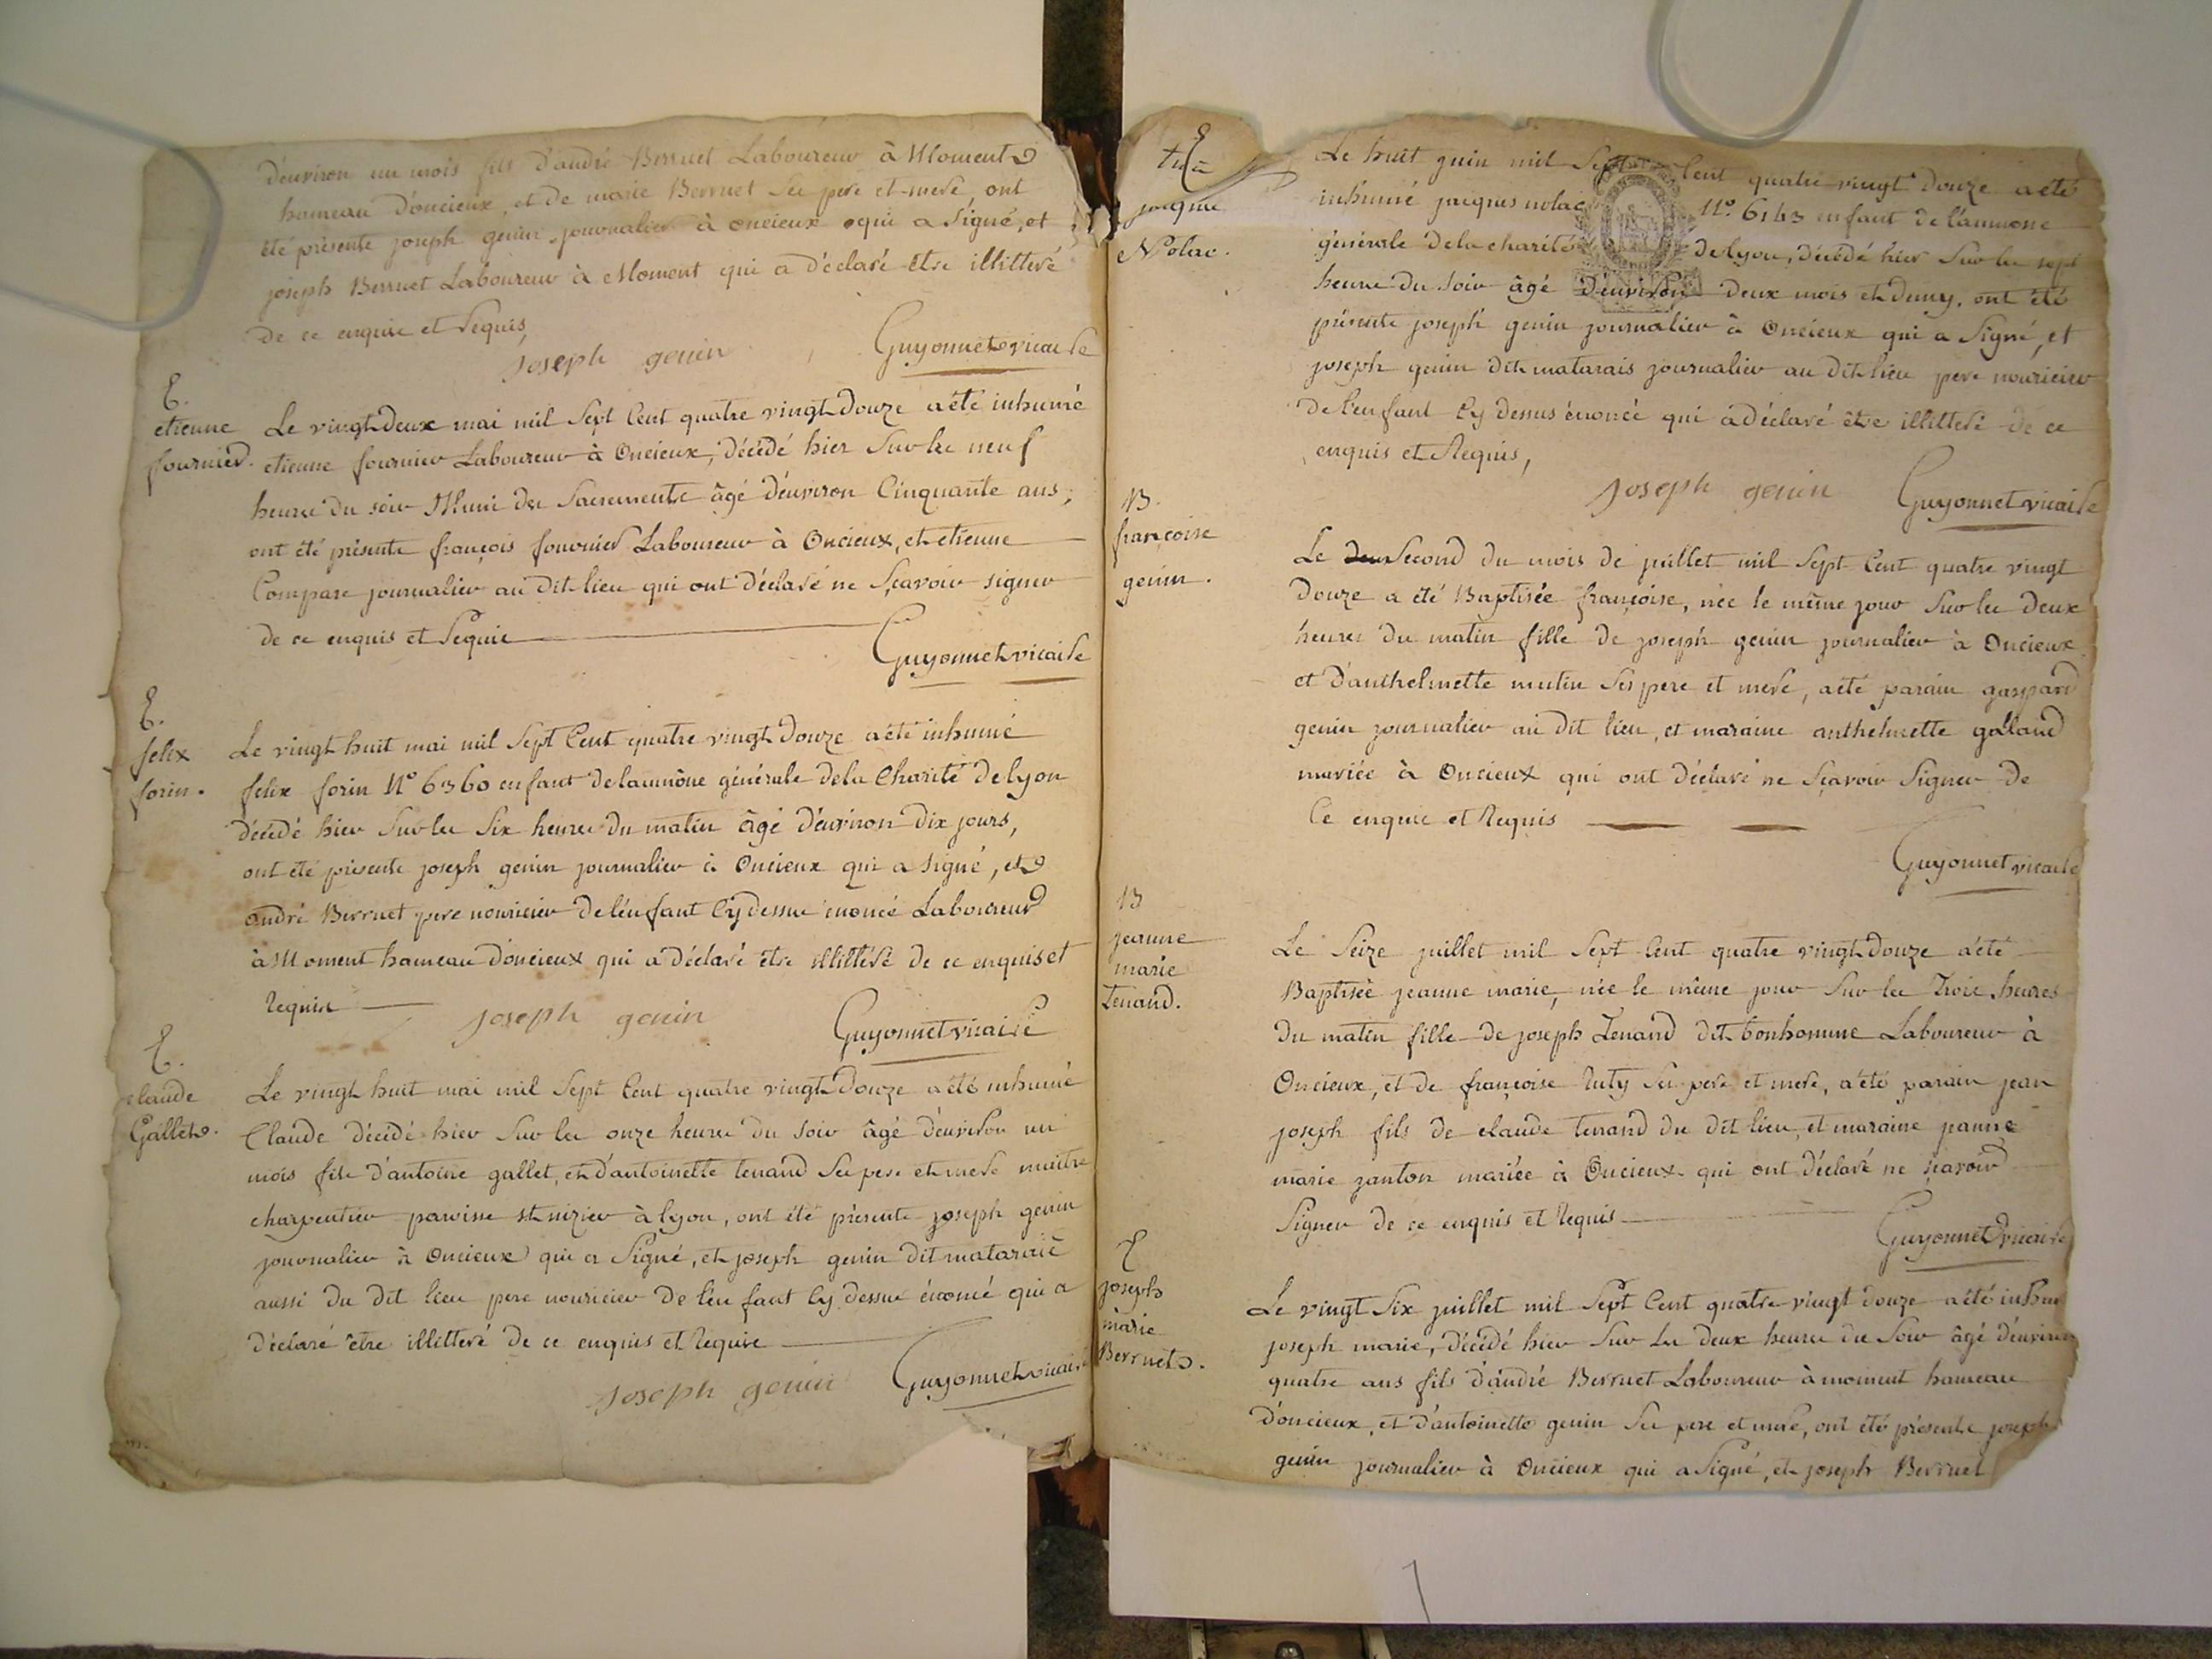 d'environ un mois fils d'andré Berruet Laboureur à Moment
hameau d'oncieux, et de marie Berruet Ses pere et mere, ont
été présents joseph genin journalier à oncieux qui a Signé, et
joseph Berruet Laboureur à Moment qui a déclaré être illitteré
de ce enquis et Requis,
joseph genin Guyonnet vicaire
E.
etienne
fournier.
Le vingt Deux mai mil Sept Cent quatre vingt Douze a été inhumé
etienne fournier Laboureur à Oncieux, décédé hier Sur les neuf
heures du soir Muni des Sacrements âgé d'environ Cinquante ans;
ont été présents françois fournier Laboureur à Oncieux, et etienne
Compare journalier au dit lieu qui ont déclaré ne Sçavoir signer
de ce enquis et Requis
Guyonnet vicaire
E.
felix
forin.
Le vingt huit mai mil Sept Cent quatre vingt Douze a été inhumé
felix forin N° 6360 enfant de laumône générale de la Charité de lyon
décédé hier Sur les Six heures du matin âgé d'environ dix jours,
ont été présents joseph genin journalier à Oncieux qui a signé, et
andré Berruet pere nouricier de l'enfant Cy dessus énoncé Laboureur
à Moment hameau d'oncieux qui a déclaré être illitéré de ce enquis et
requis
joseph genin Guyonnet vicaire
E.
claude
Gallet.
Le vingt huit mai mil Sept Cent quatre vingt Douze a été inhumé
Claude décédé hier Sur les onze heures du Soir âgé d'environ un
mois fils d'antoine gallet, et d'antoinette tenand Ses pere et mere maitre
charpentier paroisse st nizier à lyon, ont été présents joseph genin
journalier à Oncieux qui a Signé, et joseph genin dit mataraie
aussi du dit lieu pere nouricier de l'enfant Cy dessus énoncé qui a
déclaré être illitteré de ce enquis et requis
joseph genin Guyonnet vicaire
E
jacques
Nolac.
Le huit juin mil Sept Cent quatre vingt Douze a été
inhumé jacques nolac N° 6143 enfant de l'aumone
générale de la charité de lyon, décédé hier Sur les sept
heures du Soir âgé d'environ deux mois et demy, ont été
présents joseph genin journalier à Oncieux qui a Signé, et
joseph genin dit matarais journalier au dit lieu pere nouricier
de l'enfant Cy dessus énoncée qui a déclaré être illitteré de ce
enquis et Requis,
joseph genin Guyonnet vicaire
B.
françoise
genin.
Le Second du mois de juillet mil Sept Cent quatre vingt
Douze a été Baptisée françoise, née le même jour Sur les deux
heures du matin fille de joseph genin journalier à Oncieux
et d'anthelmette mutin Ses pere et mere, a été parain gaspard
genin journalier au dit lieu, et maraine anthelmette galland
mariée à Oncieux qui ont déclaré ne Sçavoir Signer de
Ce enquis et Requis
Guyonnet vicaire
B
jeanne
marie
Tenand.
Le Seize juillet mil Sept Cent quatre vingt Douze a été
Baptisée jeanne marie, née le même jour Sur les Trois heures
du matin fille de joseph Tenand dit bonhomme Laboureur à
Oncieux, et de françoise Ses pere et mere, a été parain jean
joseph fils de claude tenand du dit lieu, et maraine jeanne
marie janton mariée à Oncieux qui ont déclaré ne sçavoir
Signer de ce enquis et requis
Guyonnet vicaire
E
joseph
marie
Berruet.
Le vingt Six juillet mil Sept Cent quatre vingt douze a été inhumé
joseph marie, décédé hier Sur les deux heures du Soir âgé d'environ
quatre ans fils d'andré Berruet Laboureur à moment hameau
d'oncieux, et d'antoinette genin Ses pere et mere, ont été présents joseph
genin journalier à Oncieux qui a Signé, et joseph Berruet
7